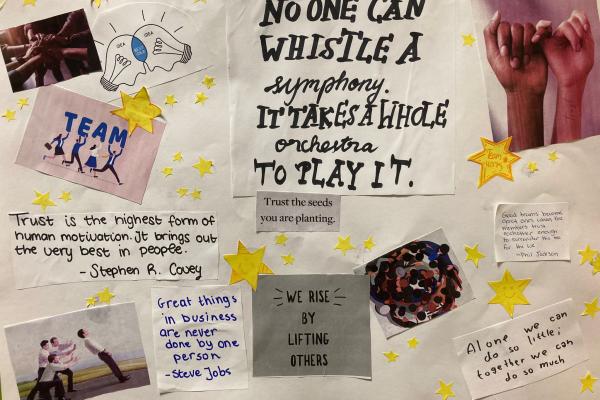 NO ONE CAN
WHISTLE A
symphony.
IT TAKES A WHOLE
orchestra
TO PLAY IT.
IDEA
IDEA
TEAM
Team
work
Trust the seeds
you are planting.
Trust is the highest form of
human motivation. It brings out
the very best in people.
- Stephen R. Covey
Good teams become
great ones when the
members trust
eachother enough
to surrender the me
for the we
- Phil Jackson
Great things
in business
are never
done by one
person
- Steve Jobs
WE RISE
BY
LIFTING
OTHERS
Alone we can
do so little;
together we can
do so much